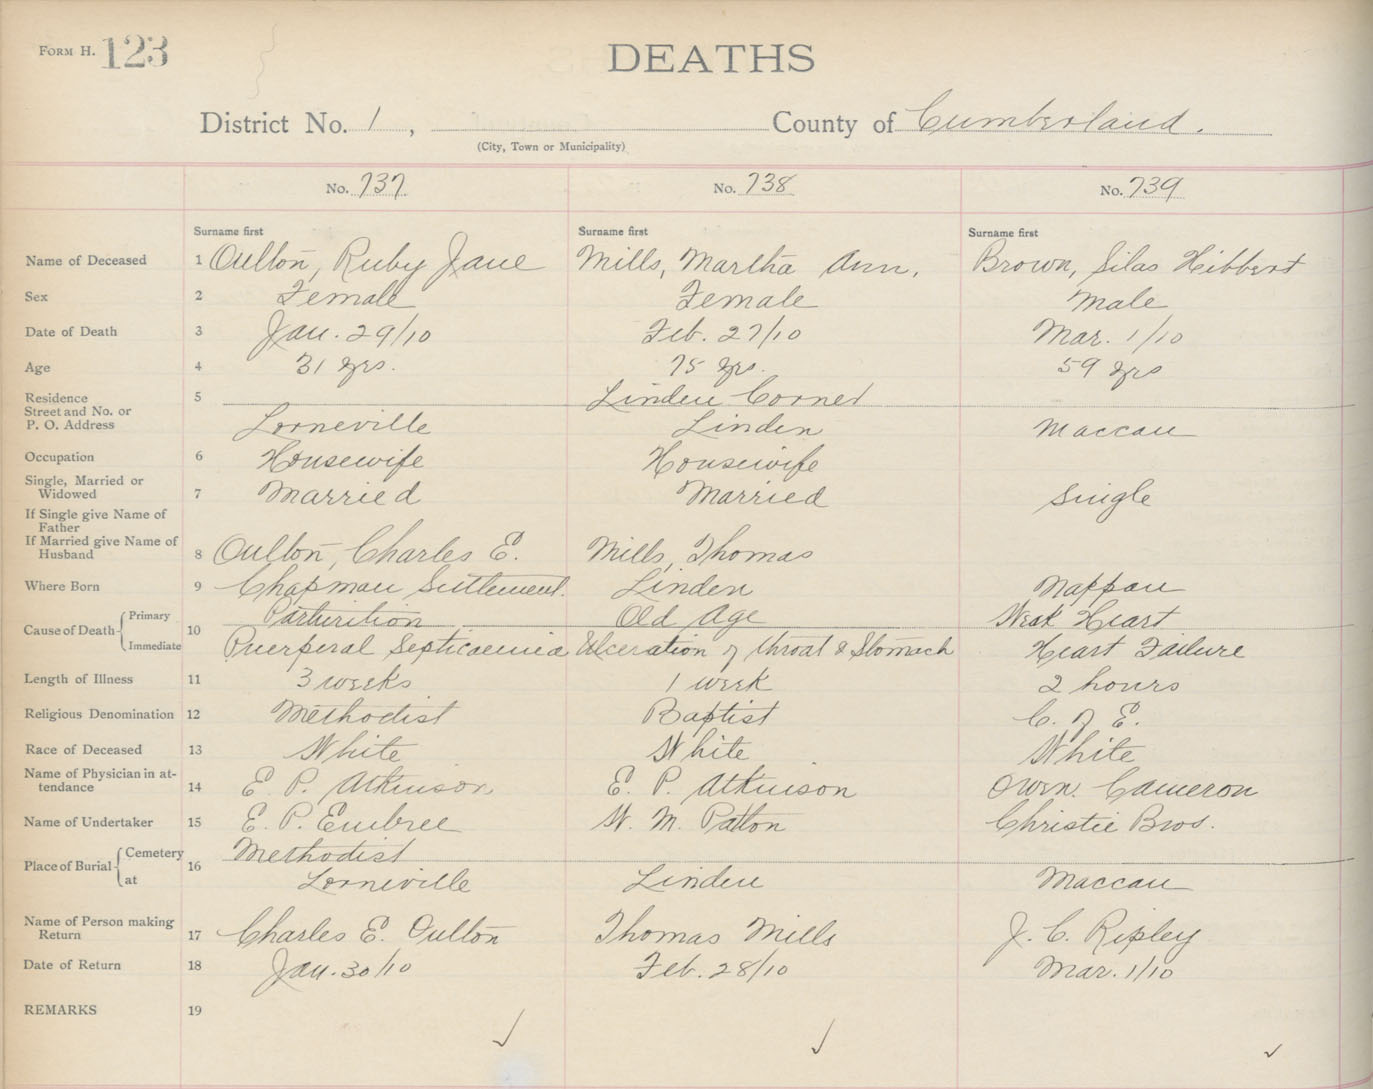 FORM H. 123
DEATHS
District No. 1 , County of Cumberland.
(City, Town or Municipality)
No. 737 No. 738 No. 739
Surname first Surname first Surname first
Name of Deceased 1 Oulton, Ruby Jane Mills, Martha Ann, Brown, Silas Hibbert
Sex 2 Female Female Male
Date of Death 3 Jan. 29/10 Feb. 27/10 Mar. 1/10
Age 4 31 yrs. 75 yrs. 59 yrs
Residence 5 Linden Corner
Street and No. or
P. O. Address Lorneville Linden Maccan
Occupation 6 Housewife Housewife
Single, Married or
Widowed 7 Married Married Single
If Single give Name of
Father
If Married give Name of
Husband 8 Oulton, Charles E. Mills, Thomas
Where Born 9 Chapman Settlement. Linden Nappan
Primary Parturition Old Age Weak Heart
Cause of Death 10
Immediate Puerperal Septicaemia Ulceration of throat & Stomach Heart Failure
Length of Illness 11 3 weeks 1 week 2 hours
Religious Denomination 12 Methodist Baptist C. of E.
Race of Deceased 13 White White White
Name of Physician in at-
tendance 14 E. P. Atkinson E. P. Atkinson Owen. Cameron
Name of Undertaker 15 E. P. Embree W. M. Patton Christie Bros.
Cemetery Methodist
Place of Burial 16
at Lorneville Linden Maccan
Name of Person making
Return 17 Charles E. Oulton Thomas Mills J. C. Ripley
Date of Return 18 Jan. 30/10 Feb. 28/10 Mar. 1/10
REMARKS 19